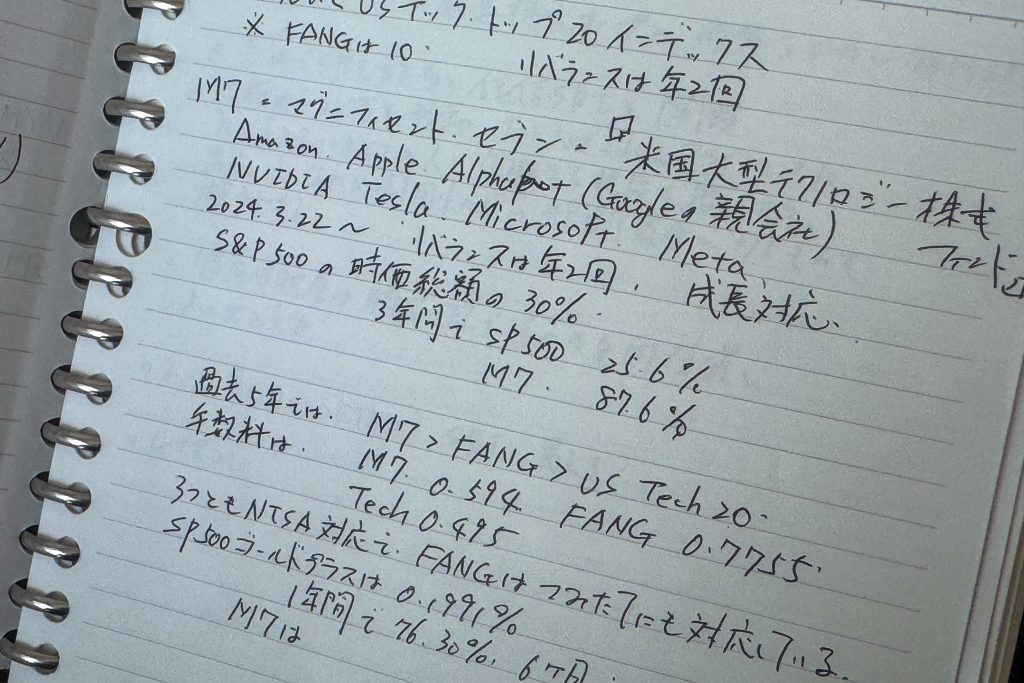 USテック・トップ20インデックス
※ FANGは10. リバランスは年2回
M7 = マグニフィセント・セブン =
米国大型テクノロジー株式
Amazon. Apple. Alphabet (Googleの親会社)
NVIDIA Tesla. Microsoft. Meta
2024.3.22〜 リバランスは年2回. 成長対応.
S&P500の時価総額の30%.
3年間で SP500 25.6%
M7. 87.6%
過去5年では. M7 > FANG > US Tech 20.
手数料は. M7. 0.594 FANG 0.7755.
Tech 0.495
3つともNISA対応で. FANGはつみたてにも対応している.
SP500ゴールドプラスは 0.1991%
1年間で 76.30%. 6ヶ月.
M7は